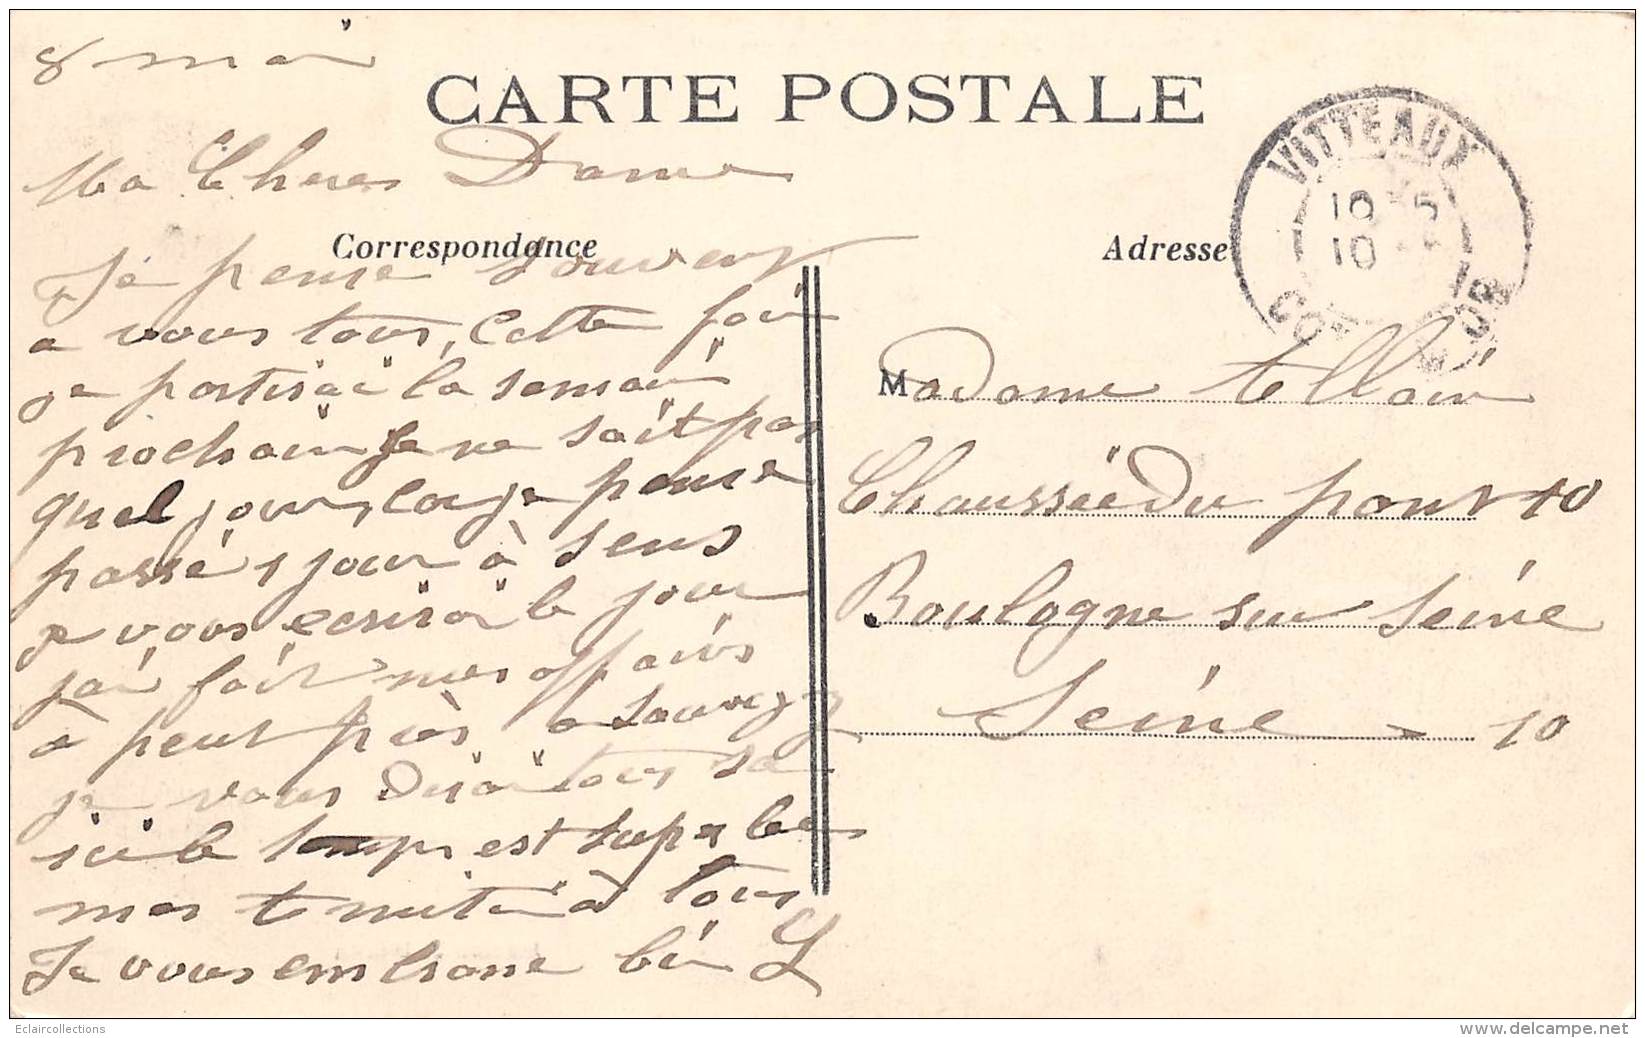 8 mai
CARTE POSTALE
Ma Chere Dame
Correspondance
Je pense souvent
a vous tous, Cette fois
je partirai la semain
prochain je ne sait pas
quel jour, car je pense
passé 1 jour à sens
je vous ecrirai le jour
j'ai fait mes affairs
à peut près a
je vous dirai tous sa
ici le temps est
mes à tous
Je vous embrasse bien
Adresse
VITTEAUX
10 5
10
COTE D'OR
Madame Allain
Chaussée du pont 10
Boulogne sur Seine
Seine - 10
Eclaircollections
www.delcampe.net